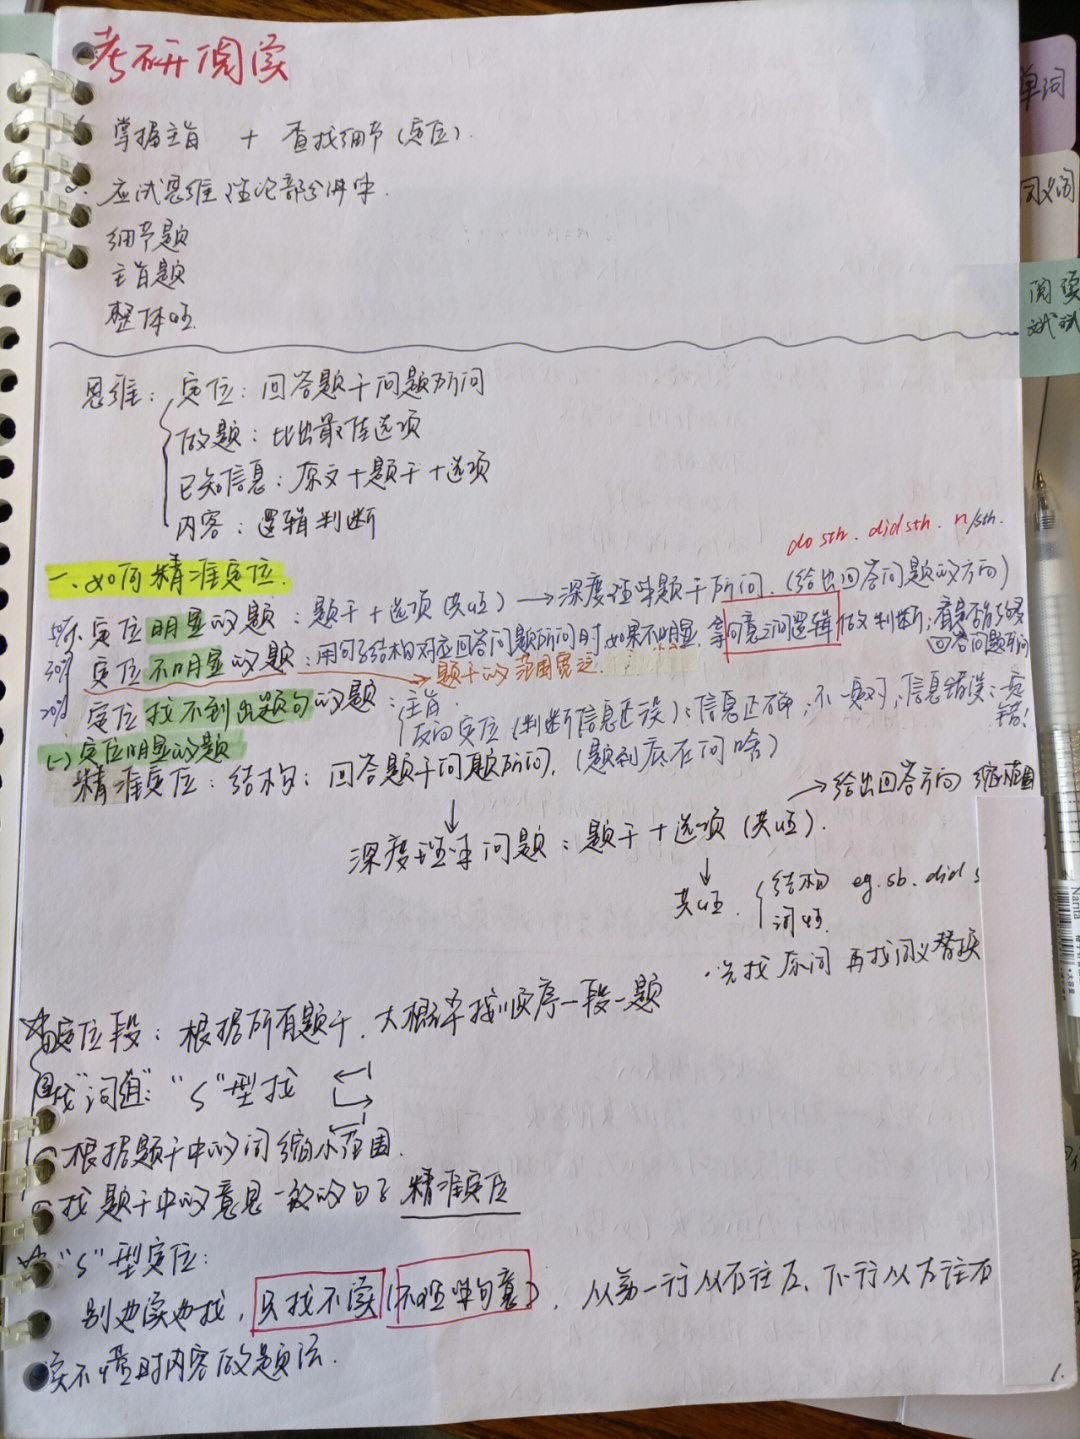 考研阅读
掌握主旨 + 查找细节(定位).
2. 应试思维 理论部分讲块.
细节题
主旨题
整体性.
思维: 定位: 回答题干问题所问
做题: 比出最佳选项
已知信息: 原文+题干+选项
内容: 逻辑判断
do sth. did sth. n/sth.
一.如何精准定位.
50% 定位明显的题: 题干+选项(共性) → 深度理解题干所问.(给出回答问题的方向)
30% 定位不明显的题: 用句子结构对应回答问题所问时 如果不明显, 拿句意之间逻辑做判断; 看是否能够
回答问题所问
题干的范围宽泛.
20% 定位找不到出题句的题: 主旨.
反向定位(判断信息正误): 信息正确; 不一致对; 信息错误:
错!
(一)定位明显的题
精准定位: 结构: 回答题干问题所问. (题到底在问啥)
→ 给出回答方向 缩小范围
深度理解问题: 题干+选项(共性).
共性. 结构 eg. sb. did s
词性.
·先找原词 再找同义替换
定位段: 根据所有题干, 大概率按顺序一段一题
找"词组": "S"型找
根据题干中的词 缩小范围.
找题干中的意思一致的句子 精准定位
"S"型定位:
别边读边找, 只找不读(不理解句意), 从第一行从右往左、下一行从左往右
读不懂时内容做题法.
1.
单词
同义词
阅读